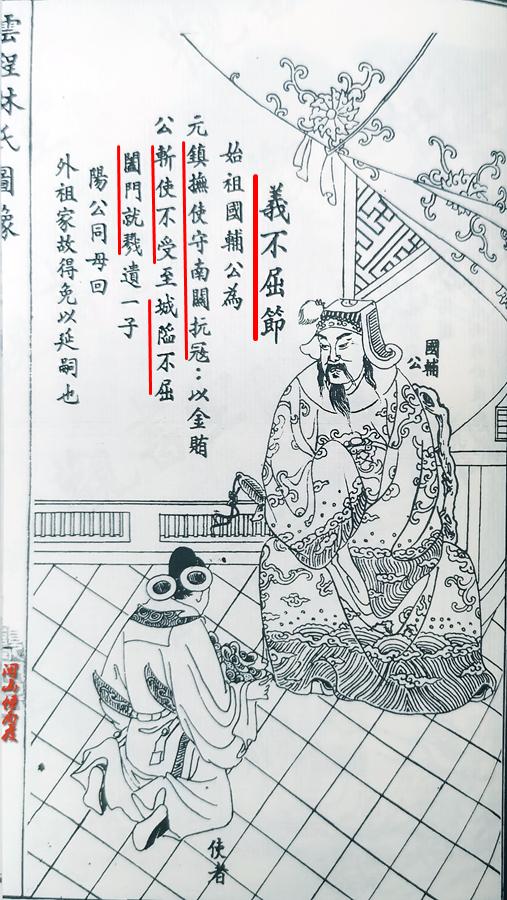 義不屈節
始祖國輔公為
元鎮撫使守南關抗冦：以金賄
公斬使不受至城陷不屈
闔門就戮遺一子
陽公同母回
外祖家故得免以延嗣也
國輔
公
使者
雲程林氏圖像